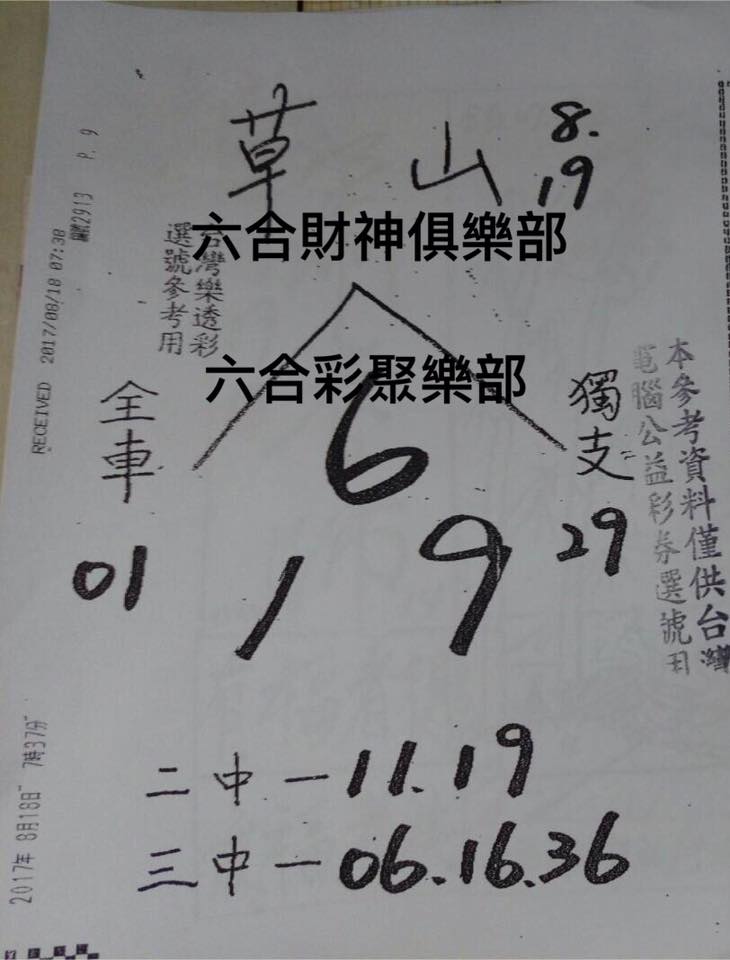 草山 8.
19
六合財神俱樂部
台灣樂透彩
選號參考用
六合彩聚樂部
RECEIVED 2017/08/18 07:38
2913 P. 9
全車
01
6
1 9
獨支
29
本參考資料僅供台灣
電腦公益彩券選號用
二中一11.19
三中一06.16.36
2017年 8月18日 7時37分